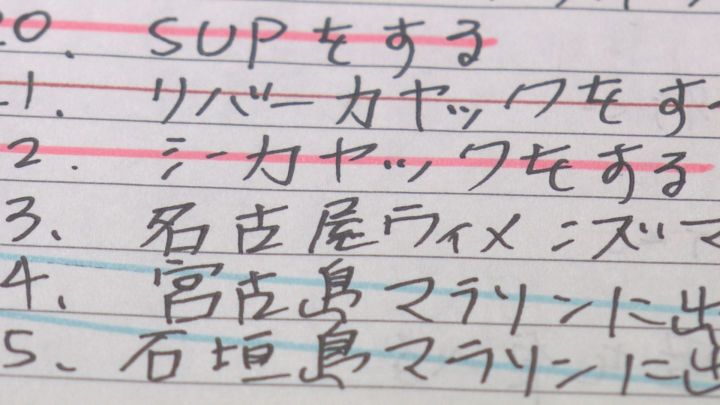 20. SUPをする
21. リバーカヤックをす
2. シーカヤックをする
3、名古屋ウィメンズマ
4、宮古島マラソンに出
5、石垣島マラソンに出